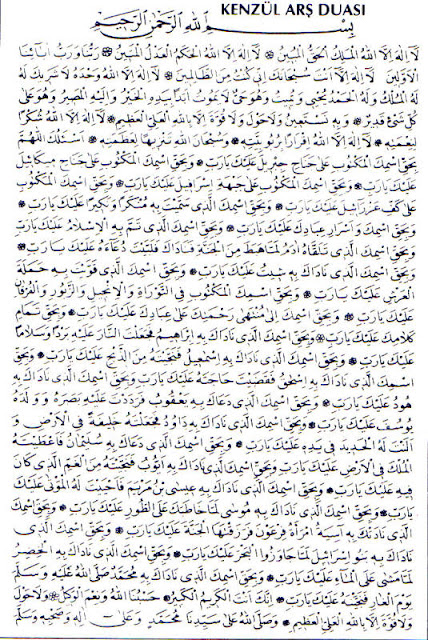 KENZÜL ARŞ DUASI
بِسْمِ اللهِ الرَّحْمٰنِ الرَّحِيمِ
لَا اِلٰهَ اِلَّا اللهُ الْمَلِكُ الْحَقُّ الْمُبِينُ ❁ لَا اِلٰهَ اِلَّا اللهُ الْحَكَمُ الْعَدْلُ الْمَتِينُ ❁ رَبُّنَا وَرَبُّ اٰبَائِنَا
الْاَوَّلِينَ لَا اِلٰهَ اِلَّا اَنْتَ سُبْحَانَكَ اِنِّي كُنْتُ مِنَ الظَّالِمِينَ ❁ لَا اِلٰهَ اِلَّا اللهُ وَحْدَهُ لَا شَرِيكَ لَهُ
لَهُ الْمُلْكُ وَلَهُ الْحَمْدُ يُحْيِي وَيُمِيتُ وَهُوَ حَيٌّ لَا يَمُوتُ اَبَدًا بِيَدِهِ الْخَيْرُ وَاِلَيْهِ الْمَصِيرُ وَهُوَ عَلٰى
كُلِّ شَيْءٍ قَدِيرٌ ❁ وَبِهِ نَسْتَعِينُ وَلَا حَوْلَ وَلَا قُوَّةَ اِلَّا بِاللهِ الْعَلِيِّ الْعَظِيمِ ❁ لَا اِلٰهَ اِلَّا اللهُ شُكْرًا
لِنِعْمَتِهِ ❁ لَا اِلٰهَ اِلَّا اللهُ اِقْرَارًا بِرُبُوبِيَّتِهِ ❁ وَسُبْحَانَ اللهِ تَنْزِيهًا لِعَظَمَتِهِ ❁ اَسْئَلُكَ اللّٰهُمَّ
بِحَقِّ اسْمِكَ الْمَكْتُوبِ عَلٰى جَنَاحِ جِبْرِيلَ عَلَيْكَ يَارَبِّ ❁ وَبِحَقِّ اسْمِكَ الْمَكْتُوبِ عَلٰى جَنَاحِ مِيكَائِيلَ
عَلَيْكَ يَارَبِّ ❁ وَبِحَقِّ اسْمِكَ الْمَكْتُوبِ عَلٰى جَبْهَةِ اِسْرَافِيلَ عَلَيْكَ يَارَبِّ ❁ وَبِحَقِّ اسْمِكَ الْمَكْتُوبِ
عَلٰى كَفِّ عَزْرَائِيلَ عَلَيْكَ يَارَبِّ ❁ وَبِحَقِّ اسْمِكَ الَّذِي سَمَّيْتَ بِهِ مُنْكَرًا وَنَكِيرًا عَلَيْكَ يَارَبِّ ❁
وَبِحَقِّ اسْمِكَ وَاَسْرَارِ عِبَادِكَ عَلَيْكَ يَارَبِّ ❁ وَبِحَقِّ اسْمِكَ الَّذِي تَمَّ بِهِ الْاِسْلَامُ عَلَيْكَ يَارَبِّ ❁
وَبِحَقِّ اسْمِكَ الَّذِي تَلَقَّاهُ اٰدَمُ لَمَّا هَبَطَ مِنَ الْجَنَّةِ فَنَادَاكَ فَلَبَّيْتَ دُعَاءَهُ عَلَيْكَ يَارَبِّ ❁
وَبِحَقِّ اسْمِكَ الَّذِي نَادَاكَ بِهِ شِيثُ عَلَيْكَ يَارَبِّ ❁ وَبِحَقِّ اسْمِكَ الَّذِي قَوَّيْتَ بِهِ حَمَلَةَ
الْعَرْشِ عَلَيْكَ يَارَبِّ ❁ وَبِحَقِّ اسْمِكَ الْمَكْتُوبِ فِي التَّوْرَاةِ وَالْاِنْجِيلِ وَالزَّبُورِ وَالْفُرْقَانِ
عَلَيْكَ يَارَبِّ ❁ وَبِحَقِّ اسْمِكَ اِلٰى مُنْتَهٰى رَحْمَتِكَ عَلٰى عِبَادِكَ عَلَيْكَ يَارَبِّ ❁ وَبِحَقِّ تَمَامِ
كَلَامِكَ عَلَيْكَ يَارَبِّ ❁ وَبِحَقِّ اسْمِكَ الَّذِي نَادَاكَ بِهِ اِبْرَاهِيمُ فَجَعَلْتَ النَّارَ عَلَيْهِ بَرْدًا وَسَلَامًا
عَلَيْكَ يَارَبِّ ❁ وَبِحَقِّ اسْمِكَ الَّذِي نَادَاكَ بِهِ اِسْمٰعِيلُ فَنَجَّيْتَهُ مِنَ الذَّبْحِ عَلَيْكَ يَارَبِّ ❁ وَبِحَقِّ
اسْمِكَ الَّذِي نَادَاكَ بِهِ اِسْحٰقُ فَقَضَيْتَ حَاجَتَهُ عَلَيْكَ يَارَبِّ ❁ وَبِحَقِّ اسْمِكَ الَّذِي نَادَاكَ بِهِ
هُودُ عَلَيْكَ يَارَبِّ ❁ وَبِحَقِّ اسْمِكَ الَّذِي دَعَاكَ بِهِ يَعْقُوبُ فَرَدَدْتَ عَلَيْهِ بَصَرَهُ وَوَلَدَهُ
يُوسُفَ عَلَيْكَ يَارَبِّ ❁ وَبِحَقِّ اسْمِكَ الَّذِي نَادَاكَ بِهِ دَاوُدُ فَجَعَلْتَهُ خَلِيفَةً فِي الْاَرْضِ وَ
اَلَنْتَ لَهُ الْحَدِيدَ فِي يَدِهِ عَلَيْكَ يَارَبِّ ❁ وَبِحَقِّ اسْمِكَ الَّذِي دَعَاكَ بِهِ سُلَيْمَانُ فَاَعْطَيْتَهُ
الْمُلْكَ فِي الْاَرْضِ عَلَيْكَ يَارَبِّ ❁ وَبِحَقِّ اسْمِكَ الَّذِي نَادَاكَ بِهِ اَيُّوبُ فَنَجَّيْتَهُ مِنَ الْغَمِّ الَّذِي كَانَ
فِيهِ عَلَيْكَ يَارَبِّ ❁ وَبِحَقِّ اسْمِكَ الَّذِي نَادَاكَ بِهِ عِيسَى بْنُ مَرْيَمَ فَاَحْيَيْتَ لَهُ الْمَوْتٰى عَلَيْكَ
يَارَبِّ ❁ وَبِحَقِّ اسْمِكَ الَّذِي نَادَاكَ بِهِ مُوسٰى لَمَّا خَاطَبَكَ عَلَى الطُّورِ عَلَيْكَ يَارَبِّ ❁ وَبِحَقِّ اسْمِكَ
الَّذِي نَادَتْكَ بِهِ اٰسِيَةُ امْرَأَةُ فِرْعَوْنَ فَرَزَقْتَهَا الْجَنَّةَ عَلَيْكَ يَارَبِّ ❁ وَبِحَقِّ اسْمِكَ الَّذِي
نَادَاكَ بِهِ بَنُو اِسْرَائِيلَ لَمَّا جَاوَزُوا الْبَحْرَ عَلَيْكَ يَارَبِّ ❁ وَبِحَقِّ اسْمِكَ الَّذِي نَادَاكَ بِهِ الْخِضْرُ
لَمَّا مَشٰى عَلَى الْمَاءِ عَلَيْكَ يَارَبِّ ❁ وَبِحَقِّ اسْمِكَ الَّذِي نَادَاكَ بِهِ مُحَمَّدٌ صَلَّى اللهُ عَلَيْهِ وَسَلَّمَ
يَوْمَ الْغَارِ فَنَجَّيْتَهُ عَلَيْكَ يَارَبِّ ❁ اِنَّكَ اَنْتَ الْكَرِيمُ الْكَبِيرُ ❁ حَسْبُنَا اللهُ وَنِعْمَ الْوَكِيلُ ❁ وَلَا حَوْلَ
وَلَا قُوَّةَ اِلَّا بِاللهِ الْعَلِيِّ الْعَظِيمِ ❁ وَصَلَّى اللهُ عَلٰى سَيِّدِنَا مُحَمَّدٍ وَعَلٰى اٰلِهِ وَصَحْبِهِ وَسَلَّمَ